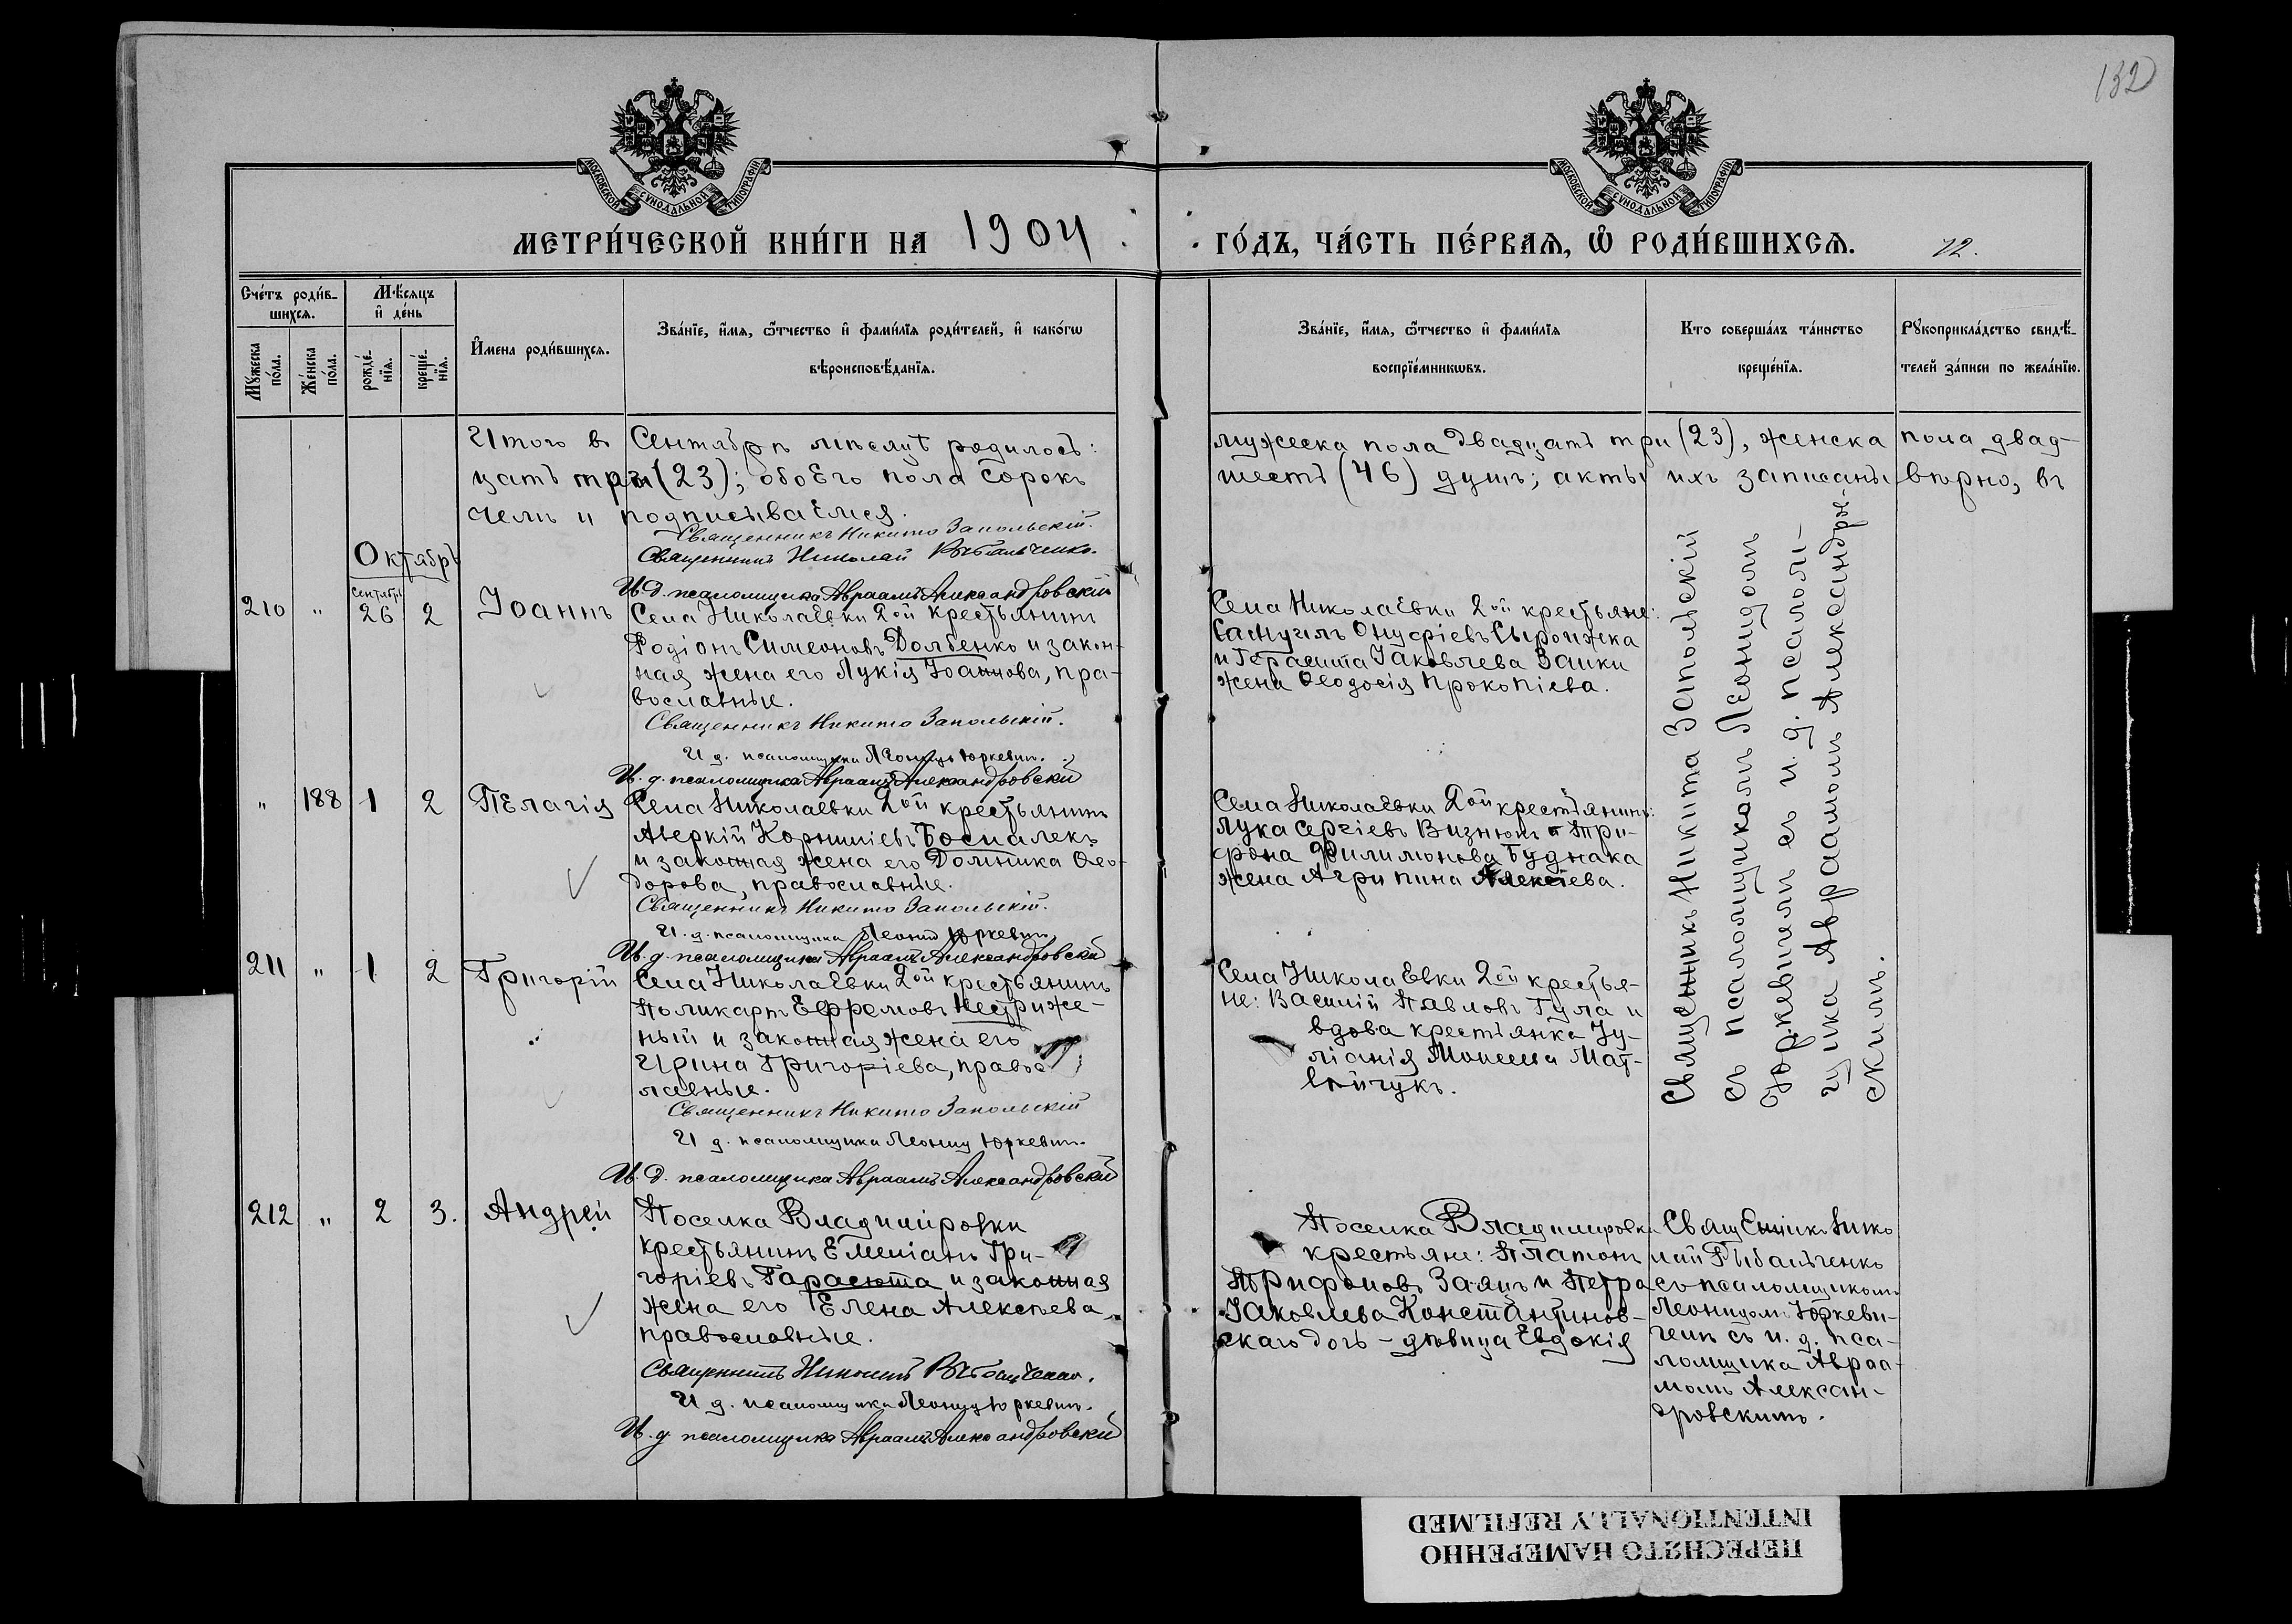 132
МОСКОВСКОЙ СѴНОДАЛЬНОЙ ТИПОГРАФІИ
МОСКОВСКОЙ СѴНОДАЛЬНОЙ ТИПОГРАФІИ
МЕТРИ́ЧЕСКОЙ КНИ́ГИ НА 1904
ГО́ДЪ, ЧА́СТЬ ПЕ́РВАѦ, Ѽ РОДИ́ВШИХСѦ. 72.
Счетъ роди́в-
шихсѧ.
Мужеска по́ла.
Же́нска по́ла.
Мѣ́сяцъ
и҆ де́нь
рожде́-
нїѧ.
креще́-
нїѧ.
И҆мена роди́вшихсѧ.
Зва́нїе, и҆́мѧ, ѻ҆́тчество и҆ фами́лїѧ роди́телей, и҆ како́гѡ
вѣроисповѣ́данїѧ.
Зва́нїе, и҆́мѧ, ѻ҆́тчество и҆ фами́лїѧ
воспрїе́мникѡвъ.
Кто соверша́лъ та́инство
креще́нїѧ.
Рꙋкоприкла́дство свидѣ́-
телей за́писи по жела́нїю.
Итого въ Сентябрѣ мѣсяцѣ родилось: мужеска пола двадцать три (23), женска пола двад-
цать три (23); обоего пола сорокъ шесть (46) душъ; акты ихъ записаны вѣрно, въ
чемъ и подписываемся.
Священникъ Никита Запольскій.
Священникъ Николай Рыбальченко.
И. д. псаломщика Авраамъ Александровскій
Октябрь
210 " Сентябрь 26 2 Іоаннъ
Села Николаевки 2ой крестьянинъ
Родіонъ Симеоновъ Долбенко и закон-
ная жена его Лукія Іоаннова, пра-
вославные.
Священникъ Никита Запольскій.
И д. псаломщика Леонидъ Юркевич.
И. д. псаломщика Авраамъ Александровскій
Села Николаевки 2ой крестьяне:
Самуилъ Онуфріевъ Сыроижка
и Герасима Іаковлева Заики
жена Ѳеодосія Прокопіева.
Священникъ Никита Запольскій
съ псаломщикомъ Леонидомъ
Юркевичемъ съ и. д. псаломщика Авраамомъ Александров-
скимъ.
" 188 1 2 Пелагія
Села Николаевки 2ой крестьянинъ
Аверкій Корниліевъ Боспалекъ
и законная жена его Домника Ѳео-
дорова, православные.
Священникъ Никита Запольскій.
И. д. псаломщика Леонид Юркевич.
И. д. псаломщика Авраамъ Александровскій
Села Николаевки 2ой крестьянинъ:
Лука Сергіевъ Визнюкъ и Три-
фона Филимонова Буднака
жена Агрипина Алексіева.
211 " 1 2 Григорій
Села Николаевки 2ой крестьянинъ
Поликарпъ Ефремовъ Нестриже-
ный и законная жена его
Ирина Григоріева, правос
лавные.
Священникъ Никита Запольскій
И д. псаломщика Леонид Юркевич.
И. д. псаломщика Авраамъ Александровскій
Села Николаевки 2ой крестья-
не: Василій Павловъ Гула и
вдова крестьянка Іу-
ліанія Моисеева Мат-
вийчукъ.
212 " 2 3. Андрей
Поселка Владиміровки
крестьянинъ Емеліанъ Гри-
горіевъ Гарасюта и законная
жена его Елена Алексѣева,
православные.
Священникъ Николай Рыбальченко.
И д. псаломщика Леонид Юркевич.
И. д. псаломщика Авраамъ Александровскій
Поселка Владиміровки
крестьяне: Платонъ
Трифоновъ Заяцъ и Петра
Іаковлева Константинов-
скаго дочь - дѣвица Евдокія
Священникъ Нико
лай Рыбальченко
съ псаломщикомъ
Леонидомъ Юркеви-
чемъ съ и. д. пса-
ломщика Авраа-
момъ Алексан-
дровскимъ.
ПЕРЕСНЯТО НАМЕРЕННО
INTENTIONALLY REFILMED